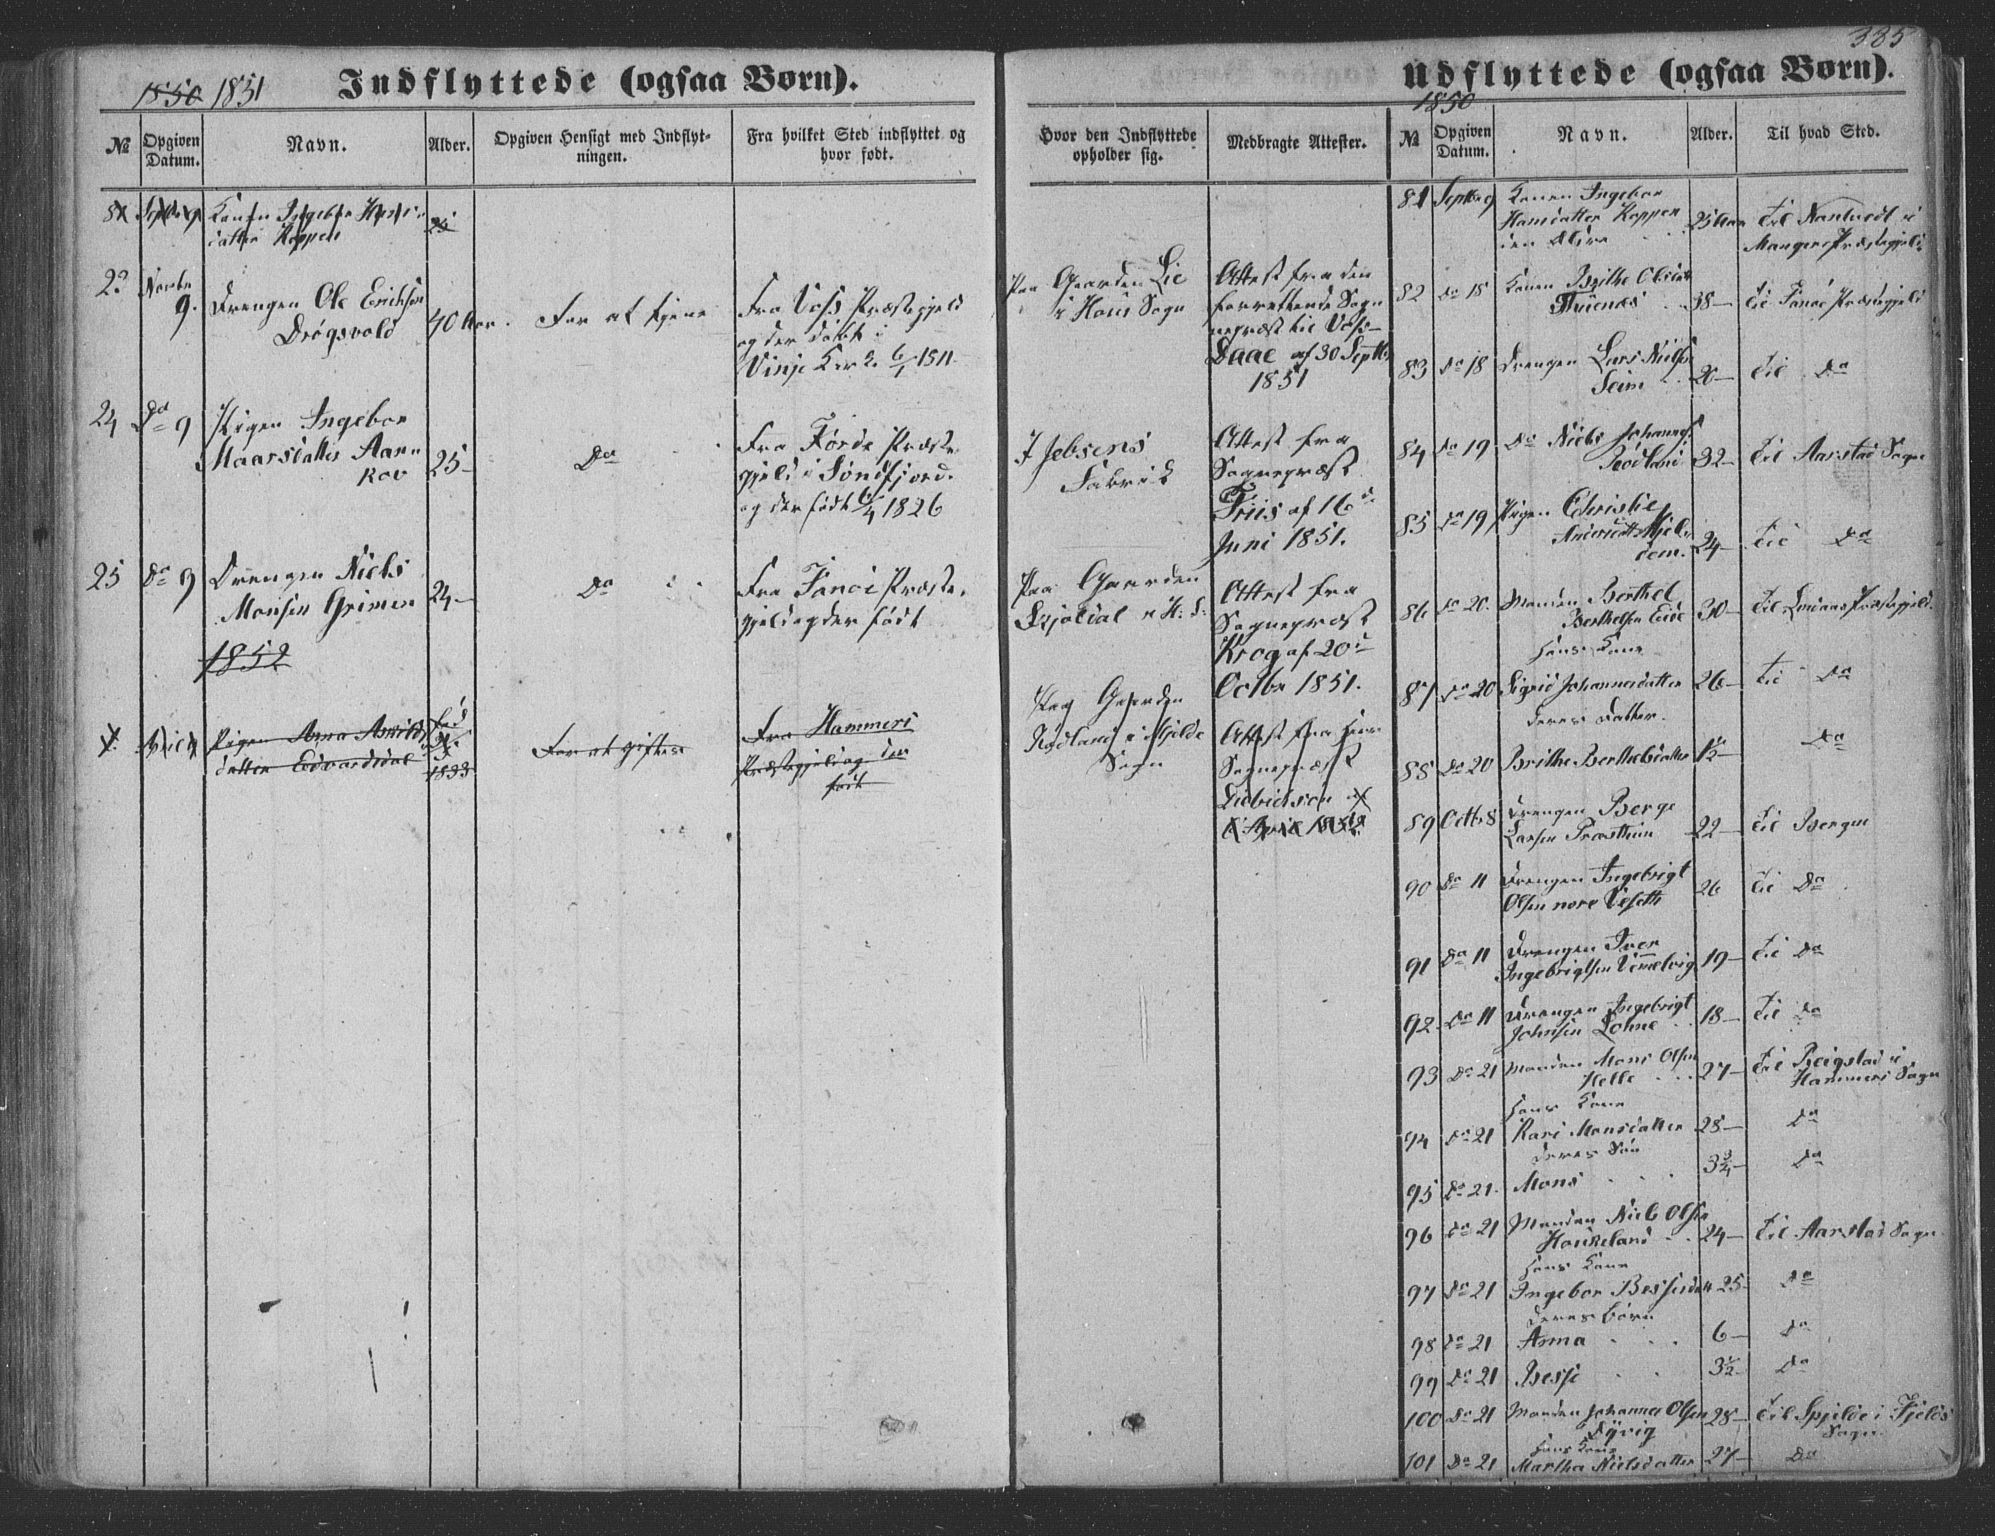 385
1850 1851 Indflyttede (ogsaa Børn).
№
Opgiven Datum.
Navn.
Alder.
Opgiven Hensigt med Indflyt-
ningen.
Fra hvilket Sted indflyttet og
hvor født.
Hvor den Indflyttede
opholder sig.
Medbragte Attester.
Konen Ingebor
datter Koppen
25
23 Novbr 9. Drengen Ole Erichsen
Drøgsvold
40 Aar.
For at tjene
Fra Voss Præstegjeld
og der døbt i
Vinje Kirke 6/1 1811
Paa Gaarden Lie
i Haus Sogn
Attest fra den
forrettende Sogne
præst til Voss
Daae af 30 Septbr
1851
24 Do 9 Pigen Ingebor
25
Do
Fra Førde Præste
gjeld i Søndfjord.
og der født 6/4 1826
J Jebsens
Fabrik
Attest fra
Sognepræst
Friis af 16 d.
Juni 1851.
25 Do 9 Drengen Niels
Monsen Grimen
24
Do
Fra Fanøe Præste-
gjeld og der født
Paa Gaarden
Attest fra
Sognepræst
Krog af 20 d
Octbr 1851.
1852
Pigen Anna
datter Edvardsdal
fød
1833
For at giftes
Fra Hammers
Præstegjeld og der
født
Paa Gaarden
Rødland i Mjelde
Sogn
Attest fra
Sognepræst
April 1852
Udflyttede (ogsaa Børn).
1850
№
Opgiven Datum.
Navn.
Alder.
Til hvad Sted.
81 Septbr 9 Konen Ingebor
Hansdatter Koppen
25 Aar Til
Mangers Præstegjeld
82 Do 18 Konen Brithe Olsdatt
38 Til Fanøe Præstegjeld
83 Do 18 Drengen Lars Nielsen
Seim 20 Til Do
84 Do 19 Do Niels Johannes.
Rødland 32 Til Aarstad Sogn
85 Do 19 Pigen Christie
24 Til Do
86 Do 20. Manden Berthel
Berthelsen Eide 30 Til Præstegjeld
Hans Kone
87 Do 20 Sigrid Johannesdatter 26 Til Do
deres Datter.
88 Do 20 Brithe Berthelsdatter 1½ Do
89 Octb 8 Drengen Berge
Larsen Præsthun 22 Til Bergen
90 Do 11 Drengen Ingebrigt
Olsen nore 26 Til Do
91 Do 11 Drengen Iver
Ingebrigtsen 19 Til Do
92 Do 11 Drengen Ingebrigt
Johnsen Lohne 18 Til Do
93 Do 21 Manden Mons Olsen
Helle 27 Til Beigstad i
Hammers Sogn
Hans Kone
94 Do 21 Kari Monsdatter 28 Do
deres Søn
95 Do 21. Mons 3¾ Do
96 Do 21 Manden Niels Olsen
Haukeland 24 Til Aarstad Sogn
Hans Kone
97 Do 21 Ingebor 25 Do
Deres Børn
98 Do 21 Anna 6 Do
99 Do 21 Besse 3½ Do
100 Do 21 Manden Johannes Olsen 28 Til Spjelde i Fjelds
Dyvig Sogn
Hans Kone
101 Do 21 Martha Nielsdatter 27 Do